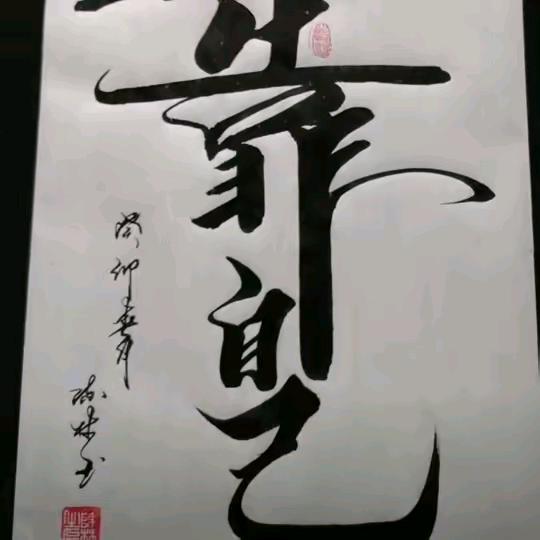 靠自己
癸卯春月
林书